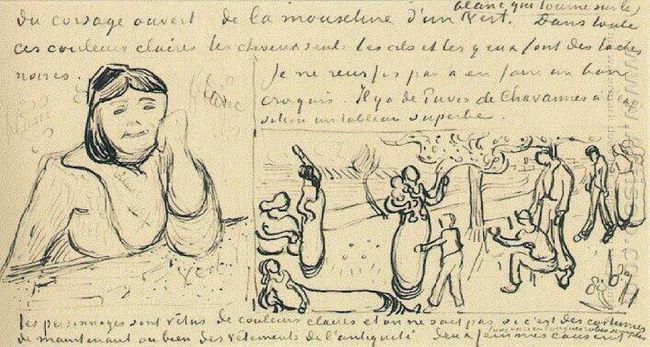 blanc qui tourne sur le
du corsage ouvert de la mousseline d'un vert. Dans toute
ces couleurs claires les cheveux seuls les cils et les yeux font des taches
noires.
Je ne reussis pas a en faire un bon
croquis. Il y a de Puvis de Chavannes à
un tableau superbe
blanc
vert
les personnages sont vêtus de couleurs claires et on ne sait pas si c'est des costumes
de maintenant ou bien des vêtements de l'antiquité deux femmes causent